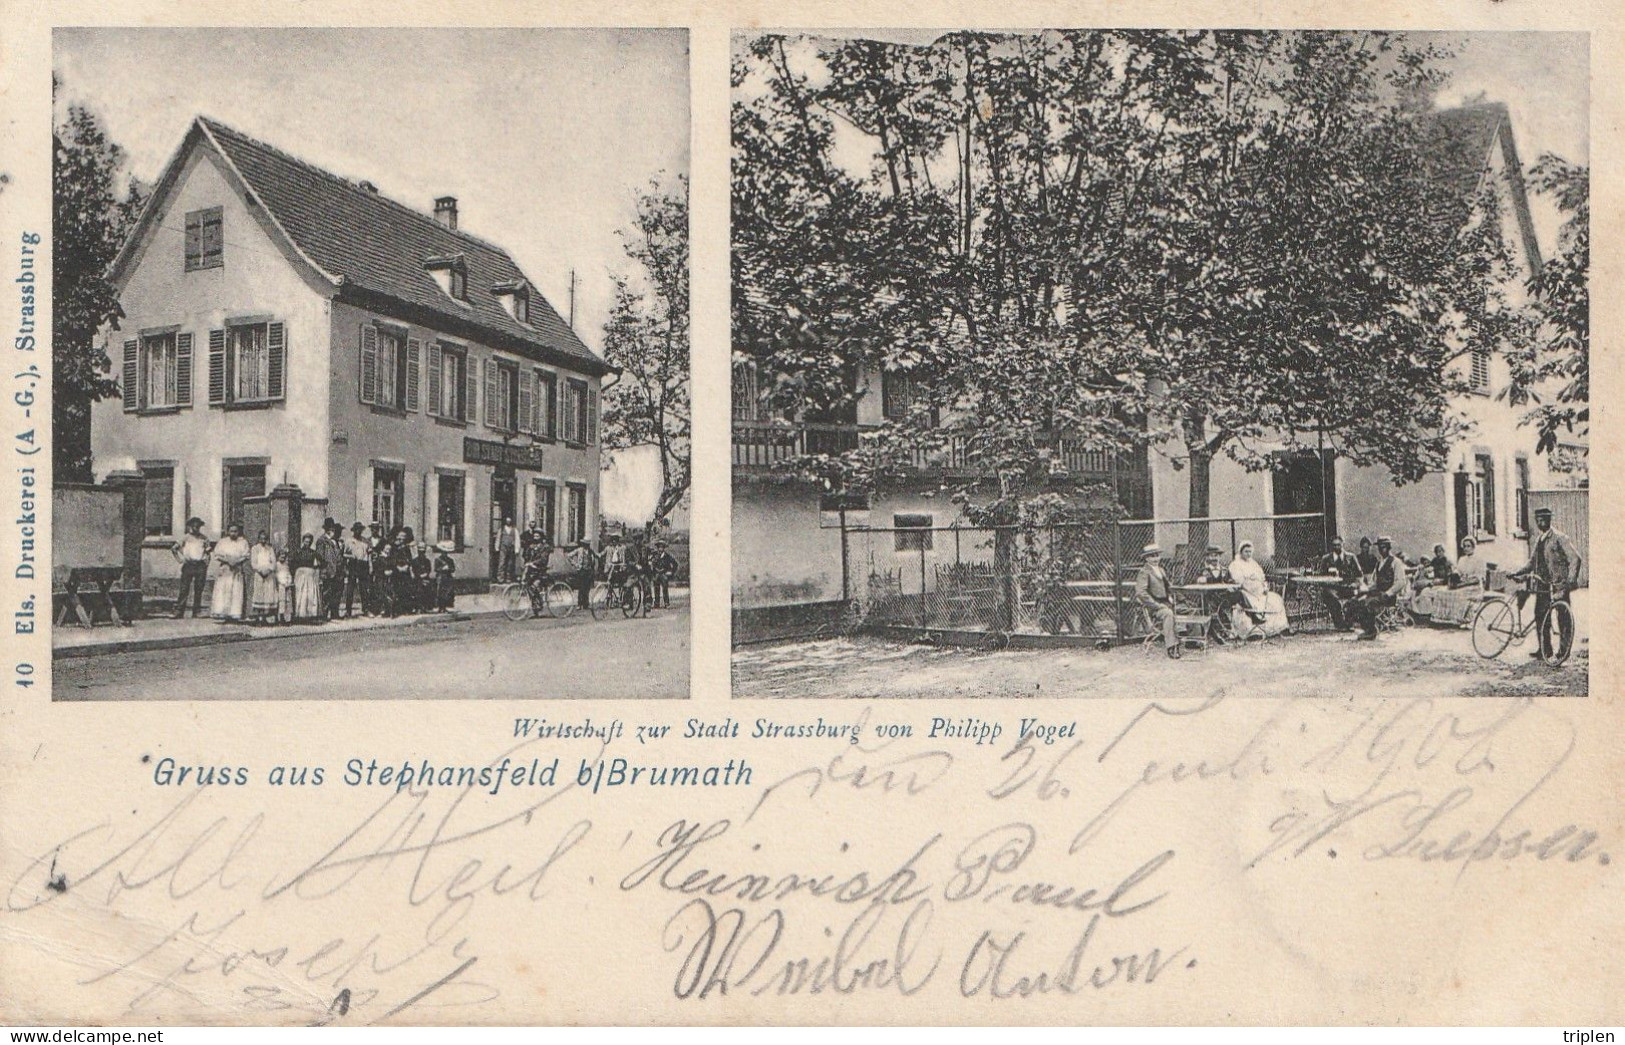 10 Els. Druckerei (A -G.), Strassburg
Wirtschaft zur Stadt Strassburg von Philipp Voget
Gruss aus Stephansfeld b/Brumath
den 26. Juli 1902
All Heil!
Heinrich Paul
W.
Joseph
Weibel Anton.
www.delcampe.net
triplen